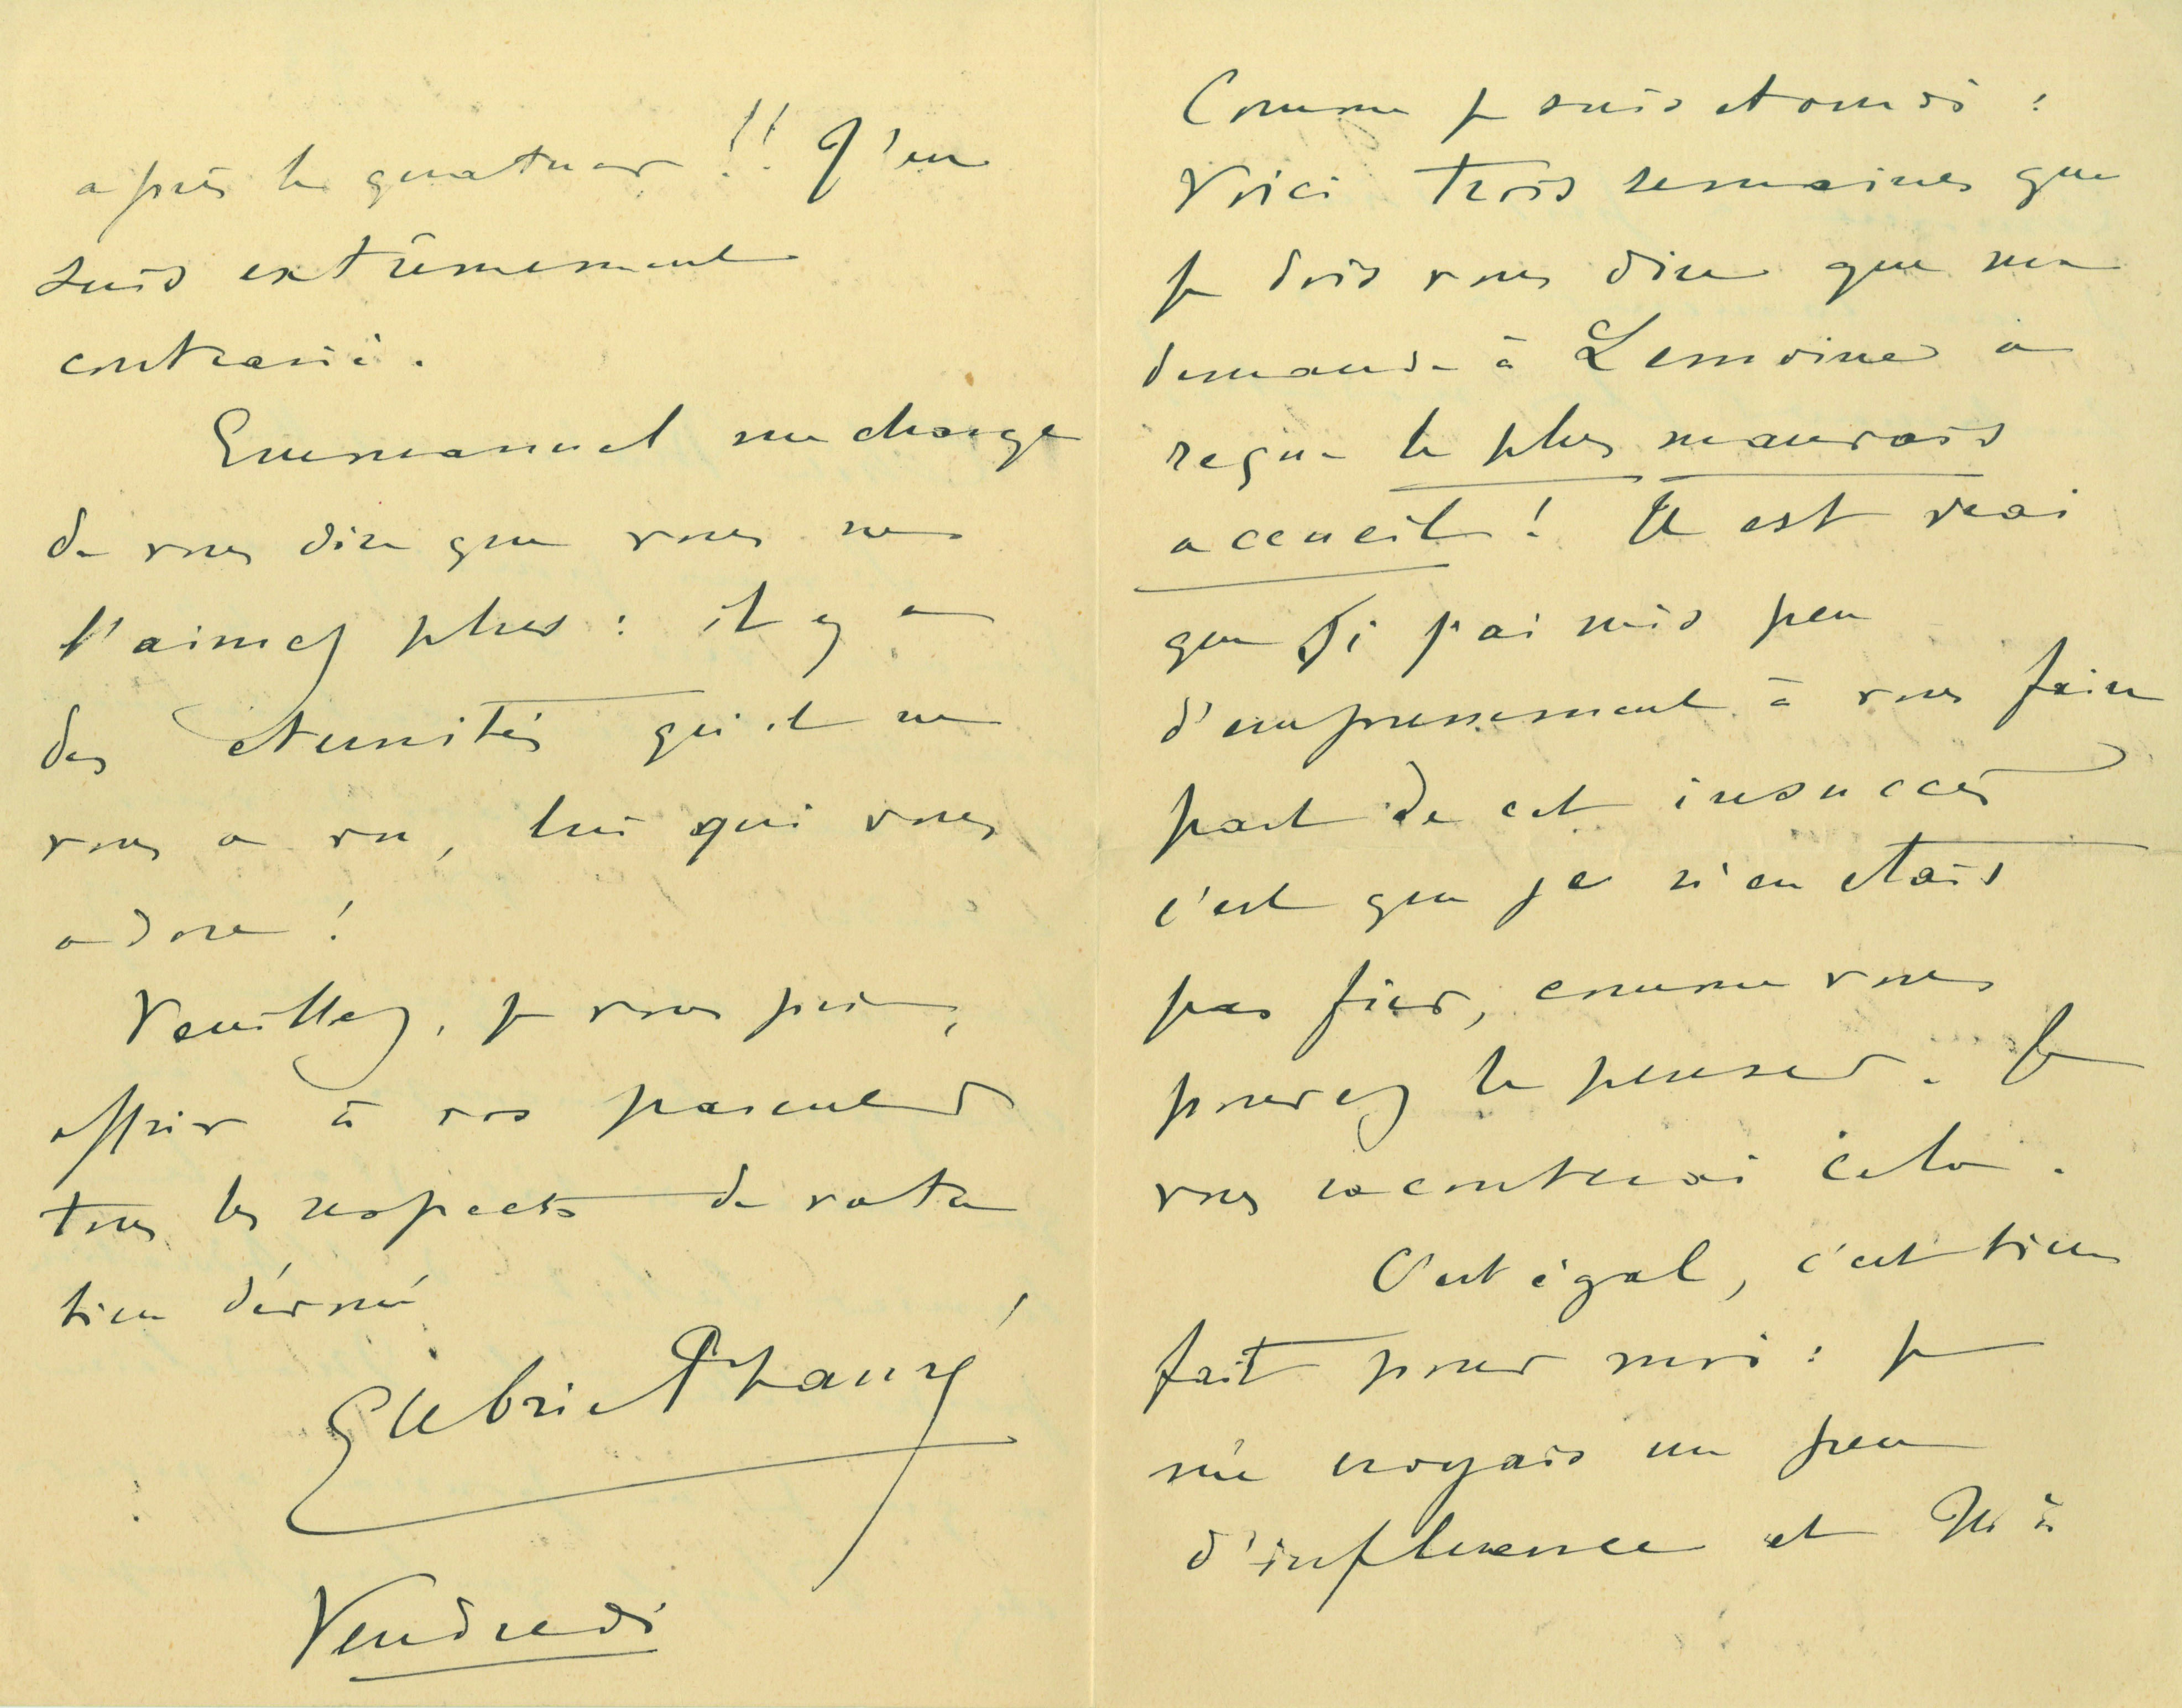 après le quatuor !! J'en
suis extrêmement
contrarié.
Emmanuel me charge
de vous dire que vous ne
l'aimez plus : il y a
des eternités qu'il ne
vous a vu, lui qui vous
adore !
Veuillez, je vous prie,
offrir à vos parents
tous les respects de votre
bien dévoué
Gabriel Fauré
Vendredi
Comme je suis etourdi :
Voici trois semaines que
je dois vous dire que ma
demande à Lemoine a
reçue le plus mauvais
accueil ! Il est vrai
que si j'ai mis peu
d'empressement à vous faire
part de cet insuccès
c'est que je n'en etais
pas fier, comme vous
pouvez le penser. Je
vous raconterai cela.
C'est égal, c'est bien
fait pour moi : je
me croyais un peu
d'influence et